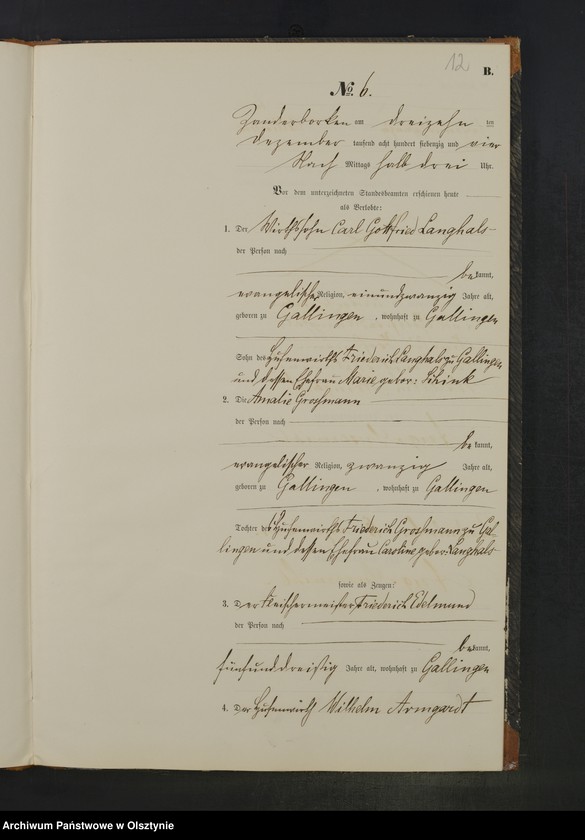 12
B.
No. 6.
Zanderborken am dreizehn ten
Dezember tausend acht hundert siebenzig und vier
Nach Mittags halb drei Uhr.
Vor dem unterzeichneten Standesbeamten erschienen heute
als Verlobte:
1. Der Wirthssohn Carl Gottfried Langhals
der Person nach
bekannt,
evangelischer Religion, einundzwanzig Jahre alt,
geboren zu Gallingen, wohnhaft zu Gallingen
Sohn des Hufenwirths Friederich Langhals zu Gallingen
und dessen Ehefrau Marie gebor: Schink
2. Die Amalie Grossmann
der Person nach
bekannt,
evangelischer Religion, zwanzig Jahre alt,
geboren zu Gallingen, wohnhaft zu Gallingen
Tochter des Hufenwirths Friederich Grossmann zu Gal-
lingen und dessen Ehefrau Caroline gebor: Langhals
sowie als Zeugen:
3. Der Fleischermeister Friederich Edelmund
der Person nach
bekannt,
fünfunddreißig Jahre alt, wohnhaft zu Gallingen
4. Der Hufenwirth Wilhelm Armgardt
Archiwum Państwowe w Olsztynie